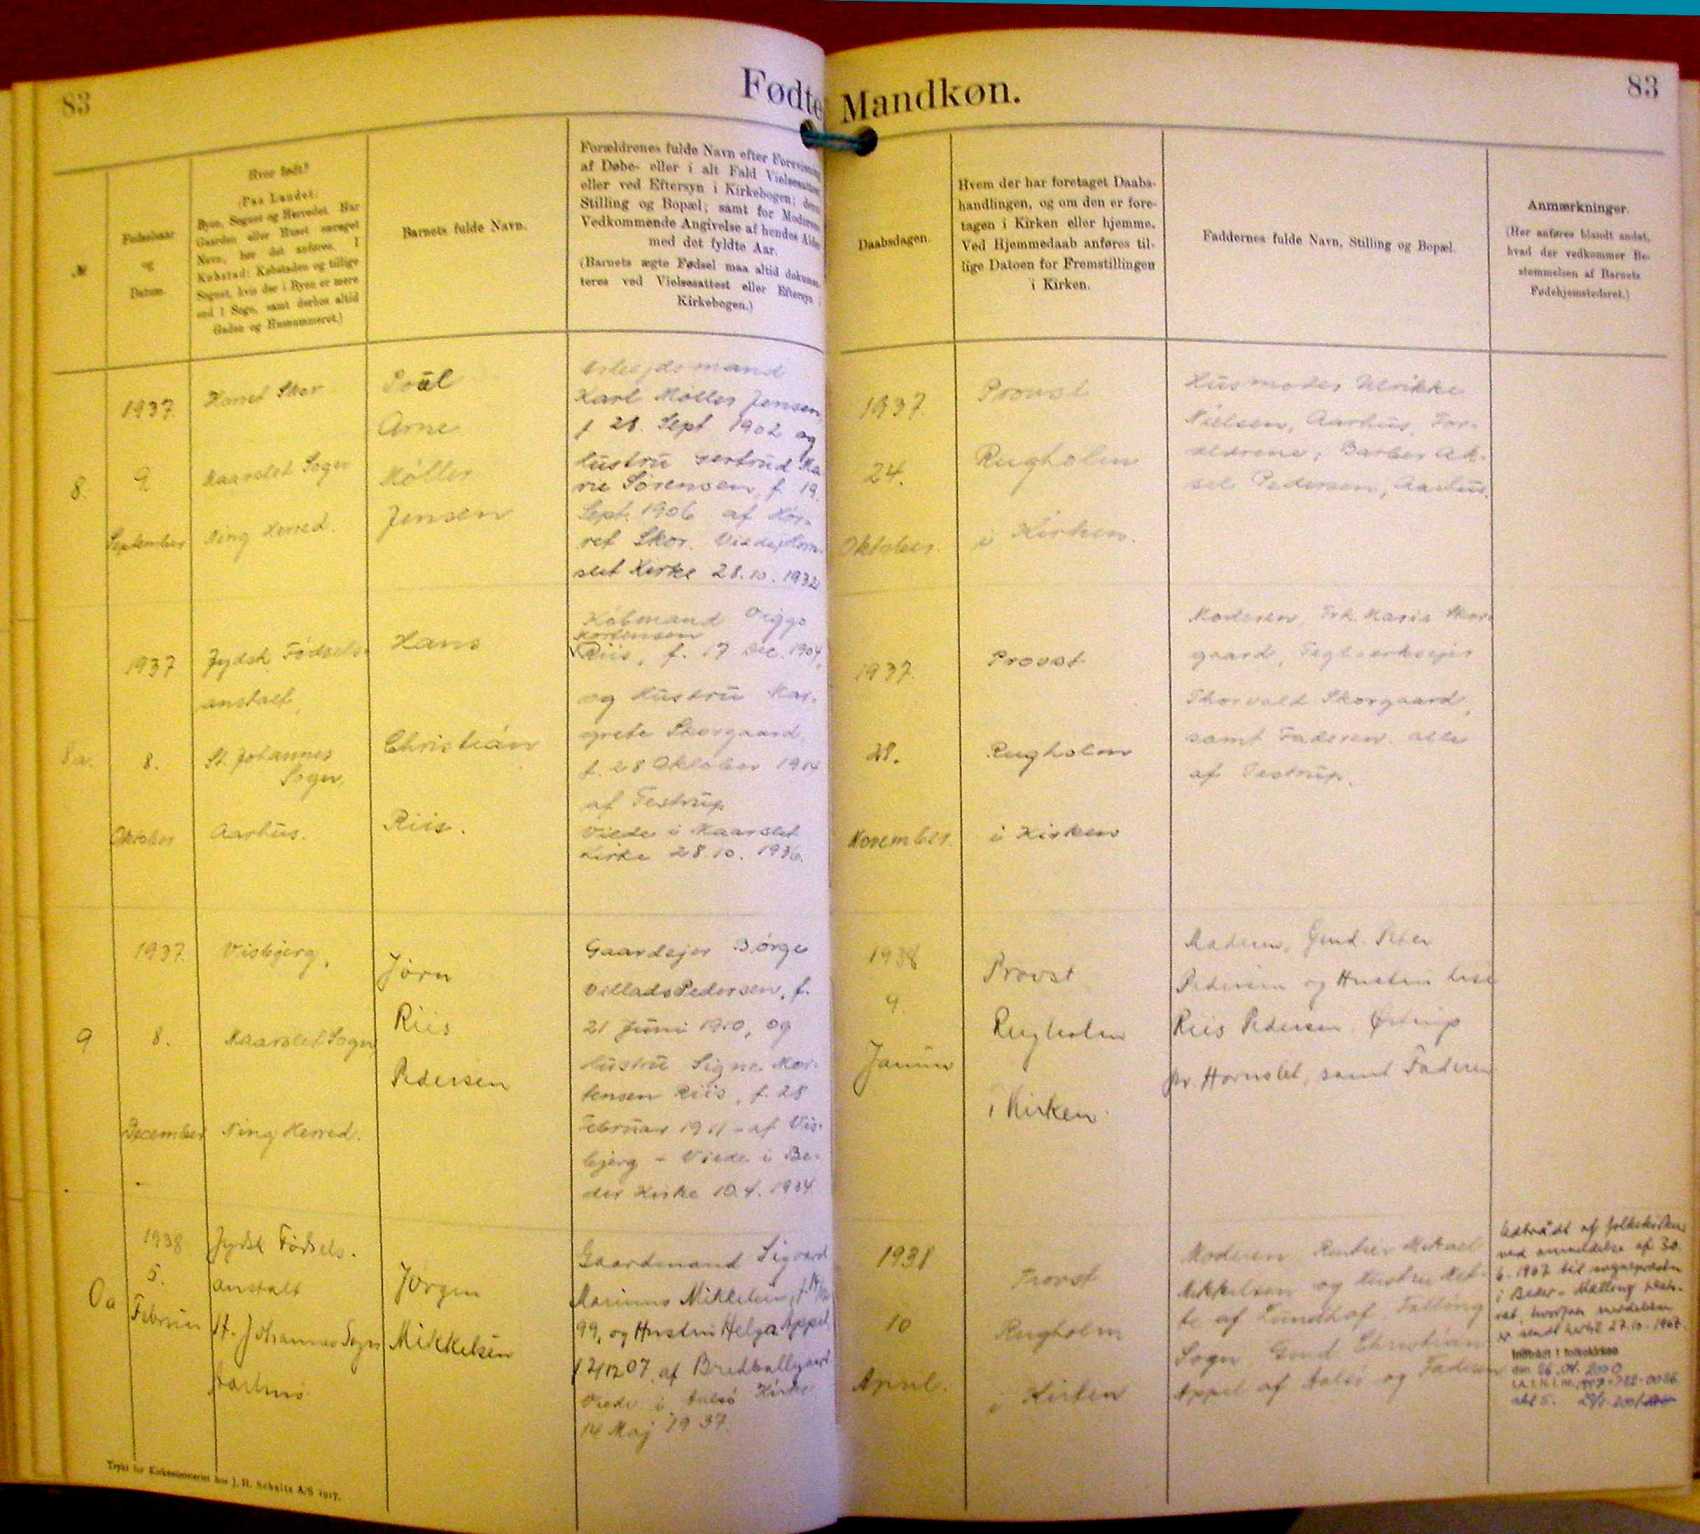 83
Fødte
Mandkøn.
83
№
Fødselsaar
og
Datum.
Hvor født?
(Paa Landet:
Byen, Sognet og Herredet. Har
Gaarden eller Huset særeget
Navn, bør det anføres. I
Købstad: Købstaden og tillige
Sognet, hvis der i Byen er mere
end 1 Sogn, samt derhos altid
Gaden og Husnummeret.)
Barnets fulde Navn.
Forældrenes fulde Navn efter
af Døbe- eller i alt Fald
eller ved Eftersyn i Kirkebogen;
Stilling og Bopæl; samt for
Vedkommende Angivelse af hendes
med det fyldte Aar.
(Barnets ægte Fødsel maa altid
teres ved Vielsesattest eller Eftersyn i
Kirkebogen.)
Daabsdagen.
Hvem der har foretaget Daabs-
handlingen, og om den er fore-
tagen i Kirken eller hjemme.
Ved Hjemmedaab anføres til-
lige Datoen for Fremstillingen
i Kirken.
Faddernes fulde Navn, Stilling og Bopæl.
Anmærkninger.
(Her anføres blandt andet,
hvad der vedkommer Be-
stemmelsen af Barnets
Fødehjemstedsret.)
8.
1937.
9
September
Hørret Skov
Maarslet Sogn
Ning Herred.
Poul
Arne
Møller
Jensen
Arbejdsmand
Karl Møller Jensen,
f. 28. Sept 1902 og
Hustru Gertrud Ma
rie Sørensen, f. 19.
Sept. 1906 af Hør-
ret Skov. Viede i Horn-
slet Kirke 28.10.1932
1937.
24.
Oktober.
Provst
Rugholm
i Kirken.
Husmoder Ulrikke
Nielsen, Aarhus, For-
ældrene, Barber Ak-
sel Pedersen, Aarhus.
8a.
1937
8.
Oktober
Jydsk Fødsels-
anstalt,
St. Johannes
Sogn,
Aarhus.
Hans
Christian
Riis.
Købmand Viggo
Mortensen
Riis, f. 17 Dec. 1904,
og Hustru Mar-
grete Skovgaard,
f. 28 Oktober 1914
af Testrup
Viede i Maarslet
Kirke 28.10.1936.
1937.
28.
November.
Provst
Rugholm
i Kirken
Moderen, Frk. Maria Skov-
gaard, Teglværksejer
Thorvald Skovgaard,
samt Faderen. alle
af Testrup.
9
1937
8.
December
Visbjerg,
Maarslet Sogn
Ning Herred.
Jørn
Riis
Pedersen
Gaardejer Børge
Villads Pedersen, f.
21 Juni 1910, og
Hustru Signe Mor-
tensen Riis, f. 28
Februar 1911 - af Vis-
bjerg - Viede i Be-
der Kirke 10.4.1934
1938
9.
Januar
Provst
Rugholm
i Kirken.
Moderen, Gmd. Peter
Pedersen og Hustru
Riis Pedersen
pr. Hornslet, samt Faderen
0a
1938
5.
Februar
Jydsk Fødsels-
anstalt
St. Johannes Sogn
Aarhus
Jørgen
Mikkelsen
Gaardmand Sigvard
Marinus Mikkelsen,
99, og Hustru Helga Appel
af Bredballegaard
Viede i Aalsø Kirke
14 Maj 1937.
1938
10
April.
Provst
Rugholm
i Kirken
Moderen Rentier Mikael
Mikkelsen og Hustru Met-
te af Lundhof, Falling
Sogn Gmd Christian
Appel af Aalsø og Faderen
Udtrådt af folkekirken
ved anmeldelse af 30.
6.1967 til sognepræsten
i Beder-Malling
hvorfra meddelelse
er sendt hertil 27.10.1967.
Indtrådt i folkekirken
den 26.04.2000
Trykt for Kirkeministeriet hos J. H. Schultz A/S 1917.